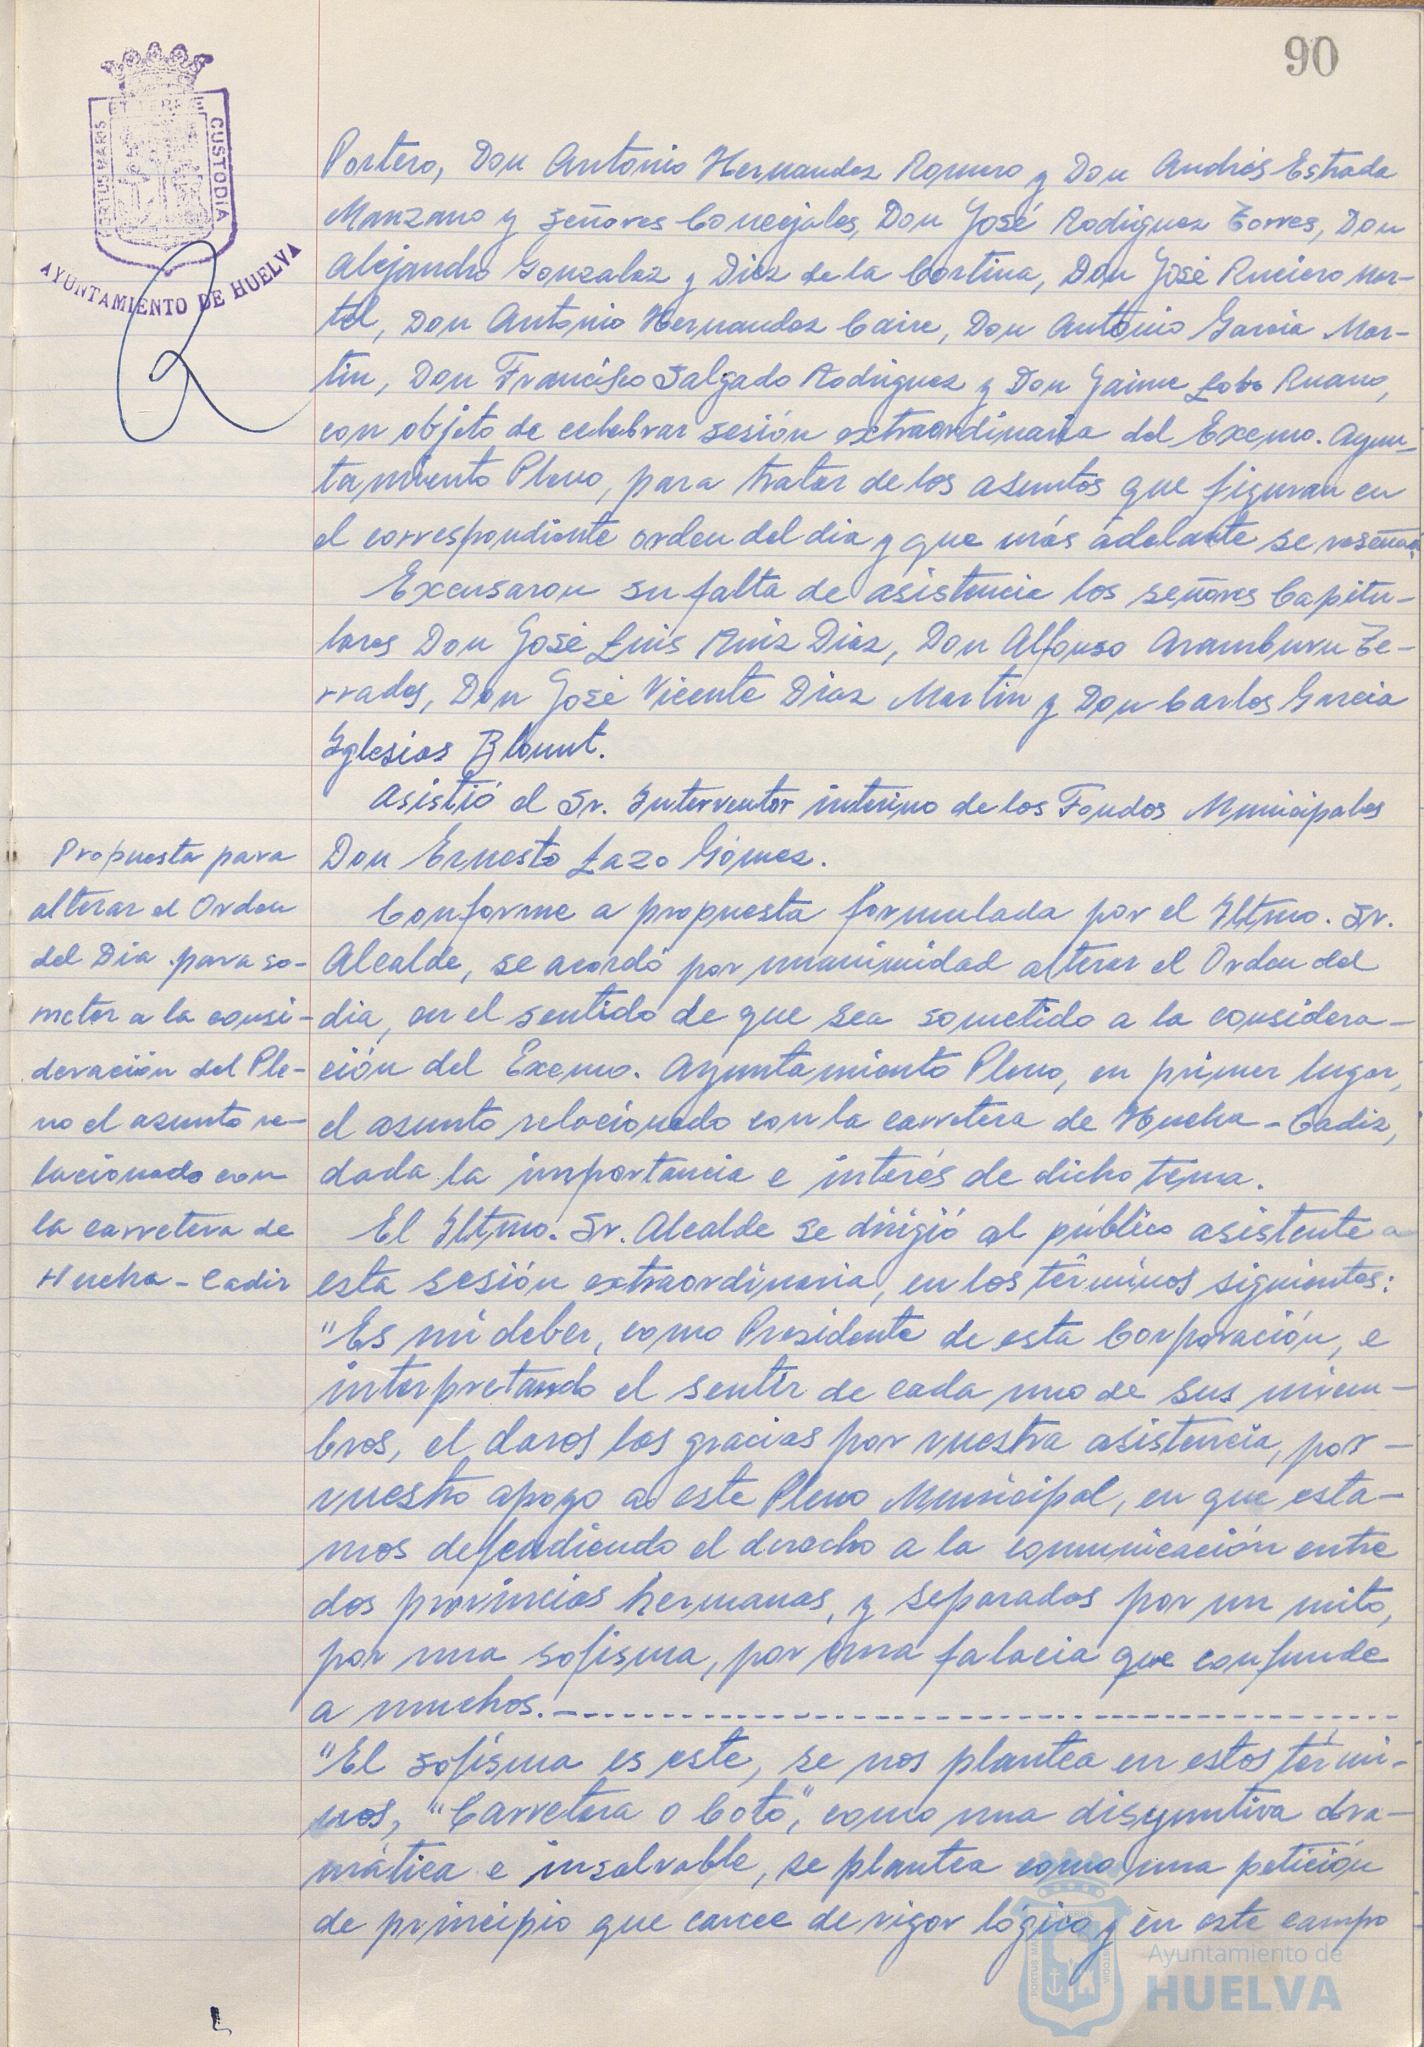 90
PORTUS MARIS ET TERRE CUSTODIA
AYUNTAMIENTO DE HUELVA
Portero, Don Antonio Hernandez Romero y Don Andrés Estrada
Manzano y señores Concejales, Don José Rodriguez Torres, Don
Alejandro Gonzalez y Diez de la Cortina, Don José Ruciero Mar-
tel, Don Antonio Hernandez Caire, Don Antonio Garcia Mar-
tin, Don Francisco Salgado Rodriguez y Don Jaime Lobo Ruano,
con objeto de celebrar sesión extraordinaria del Excmo. Ayun-
tamiento Pleno, para tratar de los asuntos que figuran en
el correspondiente orden del dia y que más adelante se reseñan.
Excusaron su falta de asistencia los señores Capitu-
lares Don José Luis Ruiz Diaz, Don Alfonso Aramburu Te-
rrades, Don José Vicente Diaz Martin y Don Carlos Garcia
Iglesias Blount.
Asistió el Sr. Interventor interino de los Fondos Municipales
Don Ernesto Lazo Gómez.
Propuesta para
alterar el Orden
del Dia para so-
meter a la consi-
deración del Ple-
no el asunto re-
lacionado con
la carretera de
Huelva - Cadiz
Conforme a propuesta formulada por el Iltmo. Sr.
Alcalde, se acordó por unanimidad alterar el Orden del
dia, en el sentido de que sea sometido a la considera-
ción del Excmo. Ayuntamiento Pleno, en primer lugar,
el asunto relacionado con la carretera de Huelva - Cadiz,
dada la importancia e interés de dicho tema.
El Iltmo. Sr. Alcalde se dirigió al público asistente a
esta sesión extraordinaria, en los términos siguientes:
"Es mi deber, como Presidente de esta Corporación, e
interpretando el sentir de cada uno de sus miem-
bros, el daros las gracias por vuestra asistencia, por
vuestro apoyo a este Pleno Municipal, en que esta-
mos defendiendo el derecho a la comunicación entre
dos provincias hermanas, y separadas por un mito,
por una sofisma, por una falacia que confunde
a muchos.-
"El sofisma es este, se nos plantea en estos térmi-
nos, "Carretera o Coto", como una disyuntiva dra-
mática e insalvable, se plantea como una petición
de principio que carece de rigor lógico y en este campo
Ayuntamiento de
HUELVA